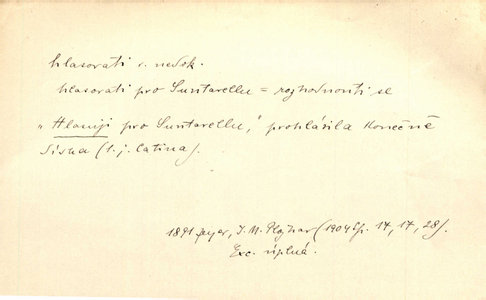 hlasovati v. nedok.
hlasovati pro Suntarellu = rozhodnouti se
„Hlasuji pro Suntarellu," prohlásila konečně
Siska (t. j. latina).
1891 J. M. (1904 Sp. 17, 17, 28).
Exc. úplná.